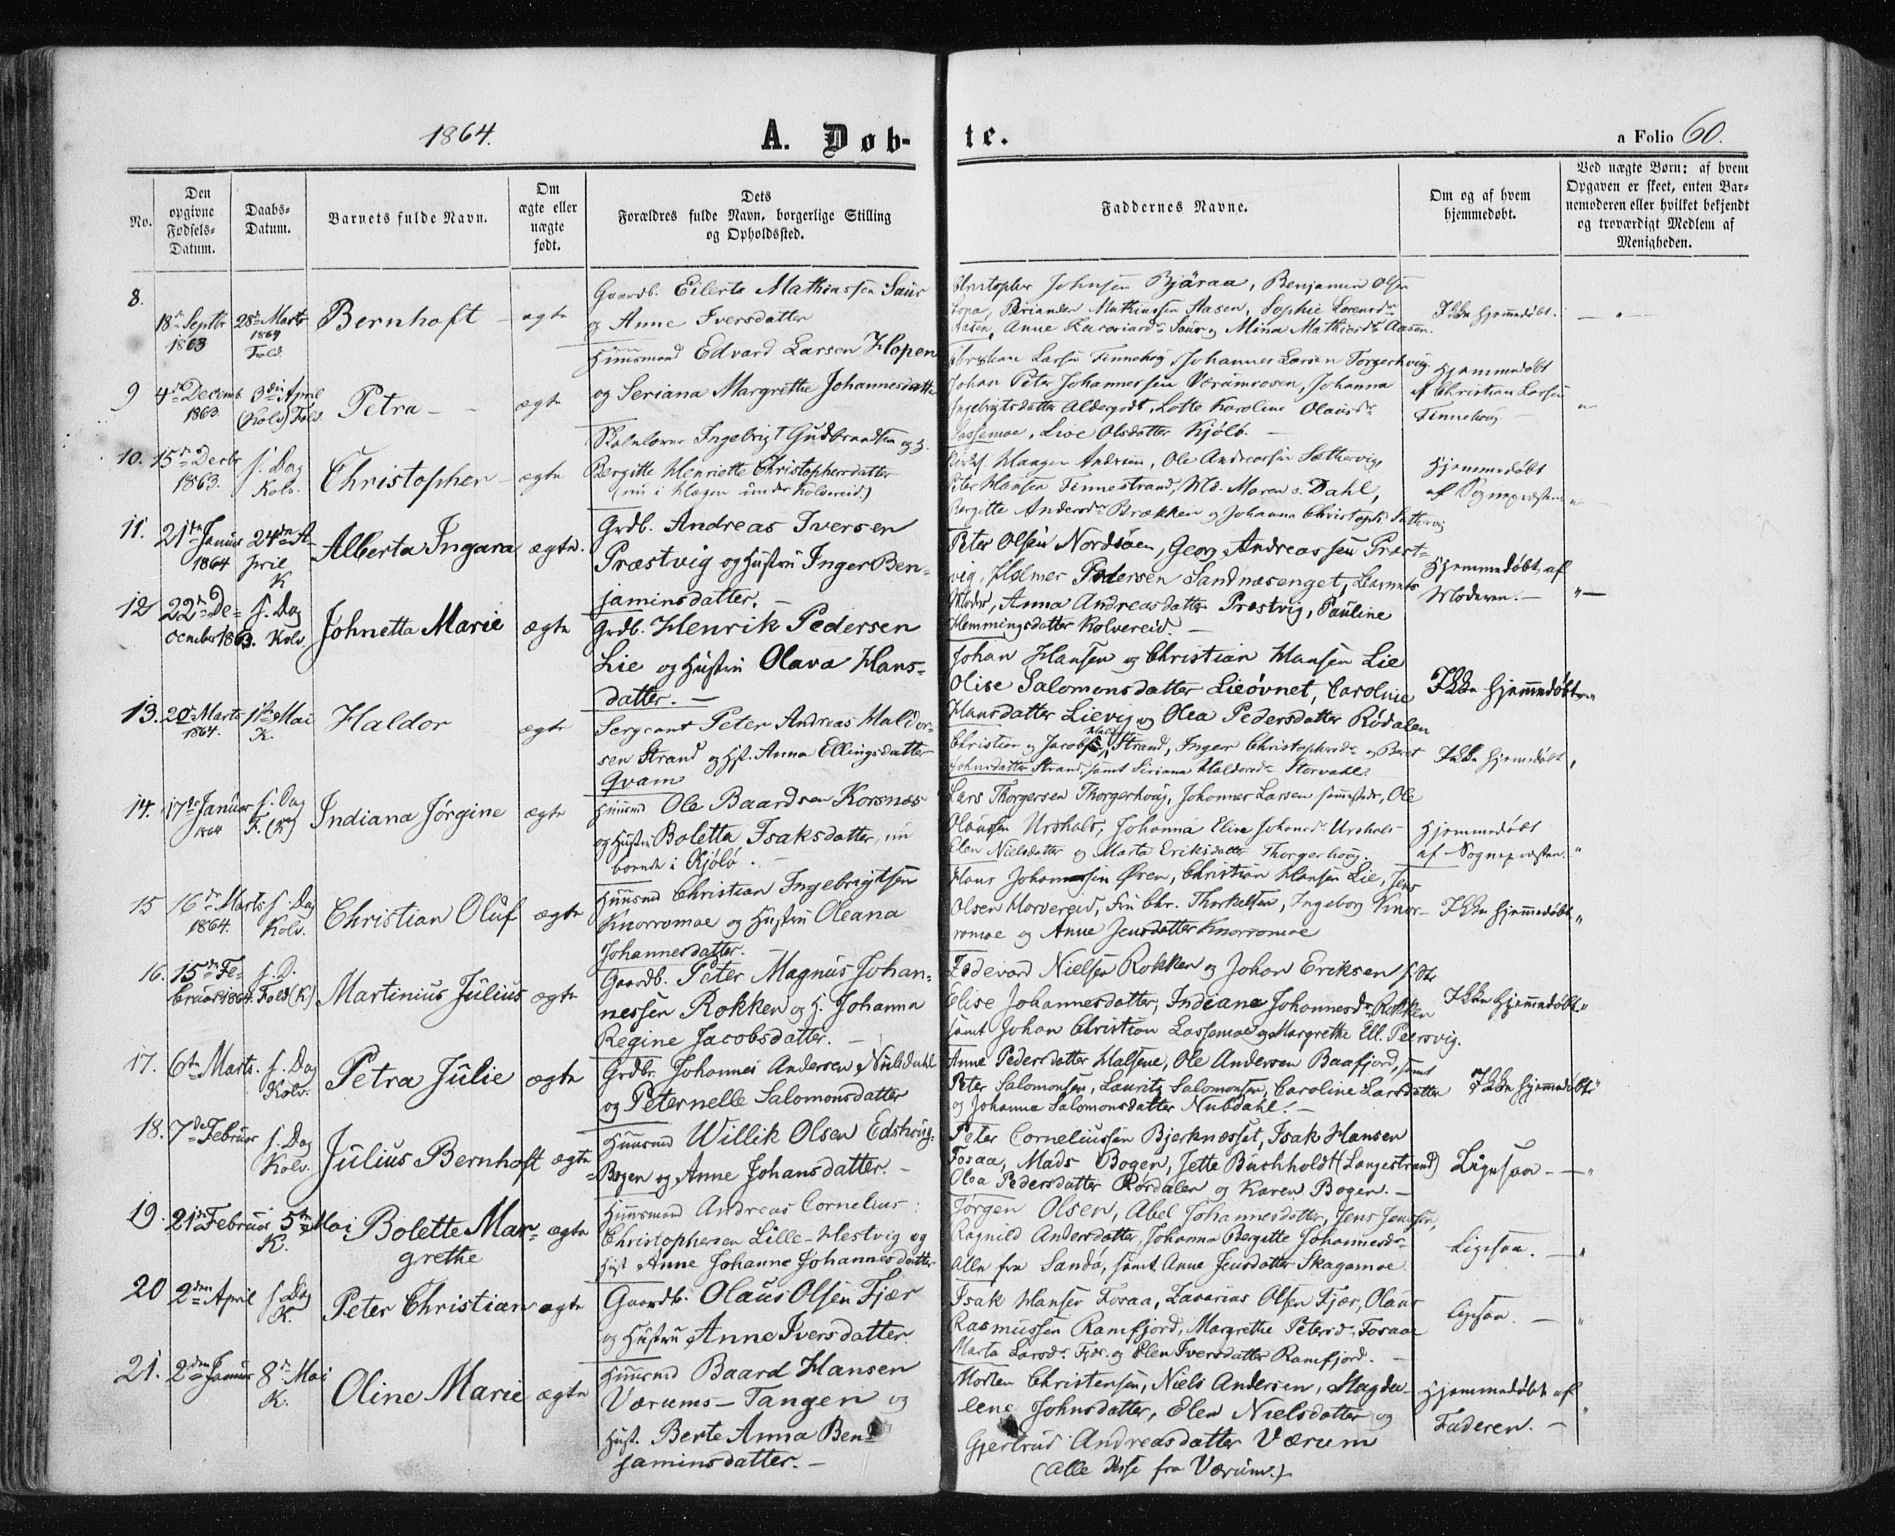 1864.
A. Døb-
te.
a Folio 60.
No.
Den opgivne Fødsels-Datum.
Daabs-Datum.
Barnets fulde Navn.
Om ægte eller uægte født.
Dets Forældres fulde Navn, borgerlige Stilling og Opholdssted.
Faddernes Navne.
Om og af hvem hjemmedøbt.
Ved uægte Børn: af hvem Opgaven er skeet, enten Barnemoderen eller hvilket bekjendt og troværdigt Medlem af Menigheden.
8.
18de Septbr 1863
28de Marts 1864 Fold.
Bernhoft
ægte
Gaardb. Eilert Mathiassen Saur
og Anne Iversdatter
Christopher Johnsen Bjäraa, Benjamin Olsen
Mathiassen Aasen, Sophie
Aasen, Anne Saur og Mina Mathiasdr Aasen.
Ikke hjemmedøbt.
9
4de Decemb 1863.
3die April (Kolv) Fold
Petra
ægte
Huusmand Edvard Larsen Hopen
og Seriana Margrethe Johannesdatter
Christian Larsen Finnehoug, Johannes Larsen Torgerhoug
Johan Peter Johannessen Værumsosen, Johanna
Ingebrigtsdatter Lotte Karoline Olausdr
Lassemoe, Live Olsdatter Kjølb.
Hjemmedøbt
af Christian Larsen
Finnehoug
10.
15de Decbr 1863.
s. Dag Kolv.
Christopher
ægte
Skolelærer Ingebrigt Gudbrandsen og H.
Bergitte Henriette Christophersdatter
(nu i Hagen under Kolvereid)
Haagen Andersen, Ole Andreassen Sæthervig,
Peter Hansen Finnestrand, Md. Maren s. Dahl,
Bergitte Andersdr Brækken og Johanna Christophsdr Sæthervig
Hjemmedøbt
af Sognepræsten
11.
21de Januar 1864
24de April K
Alberta Ingara
ægte.
Grdb. Andreas Iversen
Præstvig og Hustru Inger Ben-
jaminsdatter.
Peter Olsen Nordsøen, Georg Andreassen Præst-
vig, Holmer Pedersen Sandnæsenget, Barnets
Moder, Anna Andreasdatter Præstvig, Pauline
Hemmingsdatter Kolvereid.
Hjemmedøbt af
Moderen.
12
22de December 1863.
s. Dag Kolv.
Johnetta Marie
ægte
Grdb. Henrik Pedersen
Lie og Hustru Olava Hans-
datter.
Johan Hansen og Christian Hansen Lie
Olise Salomonsdatter Lieøvnet, Caroline
Hansdatter Lievig og Olea Pedersdatter Rødalen
Ikke hjemmedøbt
13.
20de Marts 1864.
1ste Mai K.
Haldor
ægte
Sergeant Peter Andreas Haldor-
sen Strand og Hst. Anna Ellingsdatter
Qvam
Christian og Jacob Strand, Inger Christophersdr og Beret
Johnsdatter Strand, samt Siriana Haldorsdr Storvahl.
Ikke hjemmedøbt
14.
17de Januar 1864
s. Dag F. (K)
Indiana Jørgine
ægte
Huusmd Ole Baardsen Korsnæs
og Hustru Boletta Isaksdatter, nu
boende i Kjølb.
Lars Thorgersen Thorgerhoug, Johannes Larsen sammesteds, Ole
Olaussen Urshals, Johanna Eline Johansdr Urshals
Elen Nielsdatter og Marta Eriksdatter Thorgerhoug.
Hjemmedøbt
af Sognepræsten.
15
16de Marts 1864.
s. Dag Kolv.
Christian Oluf
ægte
Huusmd Christian Ingebrigtsen
Knorromoe og Hustru Oleana
Johannesdatter.
Hans Johannessen Øren, Christian Hansen Lie, Jens
Olsen Horvereid, Chr. Thorkelsen, Ingeborg Knor-
romoe og Anne Jensdatter Knorromoe
Ikke hjemmedøbt
16.
15de Februar 1864.
s. D. Fold (K)
Martinius Julius
ægte
Gaardb. Peter Magnus Johan-
nessen Rokken og H. Johanna
Regine Jacobsdatter.
Edevard Nielsen Rokken og Johan Eriksen s. St.
Elise Johannesdatter, Indiana Johannesdr Rokken
samt Johan Christian Lassemoe og Margrethe Ell. Peersvig.
Ikke hjemmedøbt
17.
6te Marts.
s. Dag Kolv.
Petra Julie
ægte
Grdbr. Johannes Andersen Nubdahl
og Peternelle Salomonsdatter
Anne Pedersdatter Halsene, Ole Andersen Baafjord, samt
Peter Salomonsen, Lauritz Salomonsen, Caroline Larsdatter
og Johanna Salomonsdatter Nubdahl.
Ikke hjemmedøbt
18.
7de Februar
s. Dag Kolv.
Julius Bernhoft
ægte
Huusmd Willik Olsen Edshoug-
Bogen og Anne Johansdatter.
Peter Corneliussen Bjerknæsset, Isak Hansen
Fosaa, Mads Bogen, Jette Buchholdt (Langestrand)
Olea Pedersdatter Rørdalen og Karen Bogen.
Ligesaa
19.
21de Februar
5te Mai K.
Bolette Mar-
grethe
ægte
Huusmand Andreas Cornelius
Christophersen Lille-Hestvig og
Hust. Anne Johanne Johannesdatter
Jørgen Olsen, Abel Johannesdatter, Jens Jenssen,
Ragnild Andersdatter, Johanna Bergitte Johannesdr
alle fra Sandø, samt Anne Jensdatter Skagamoe.
Ligesaa.
20
2den April
s. Dag K.
Peter Christian
ægte
Gaardb. Olaus Olsen Fjær
og Hustru Anne Iversdatter.
Isak Hansen Fosaa, Zacarias Olsen Fjær, Olaus
Rasmussen Ramfjord, Margrethe Petersdr Fosaae
Marta Larsdr Fjær og Elen Iversdatter Ramfjord.
Ligesaa.
21.
2den Januar
8de Mai K.
Oline Marie
ægte
Huusmd Baard Hansen
Værums-Tangen og
Hust. Berte Anna Ben-
jaminsdatter.
Morten Christensen, Niels Andersen, Magda-
lena Johnsdatter, Elen Nielsdatter og
Gjertrud Andreasdatter Værum
(Alle disse fra Værum.)
Hjemmedøbt af
Faderen.